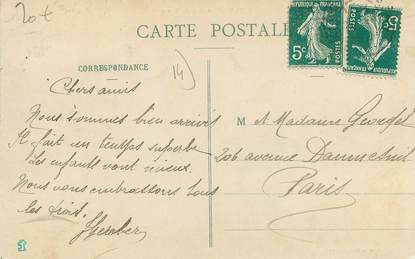 20€
CARTE POSTALE
CORRESPONDANCE
14)
Chers amis
Nous sommes bien arrivés
Il fait un temps superbe
Les enfants vont mieux.
Nous vous embrassons tous
les trois.
M et Madame Georget
206 avenue Daumesnil
Paris
5c
POSTES
REPUBLIQUE FRANÇAISE
5c
POSTES
REPUBLIQUE FRANÇAISE